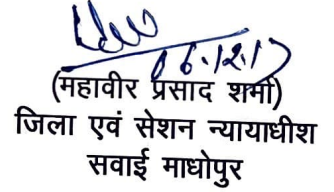 06.12.17
(महावीर प्रसाद शर्मा)
जिला एवं सेशन न्यायाधीश
सवाई माधोपुर